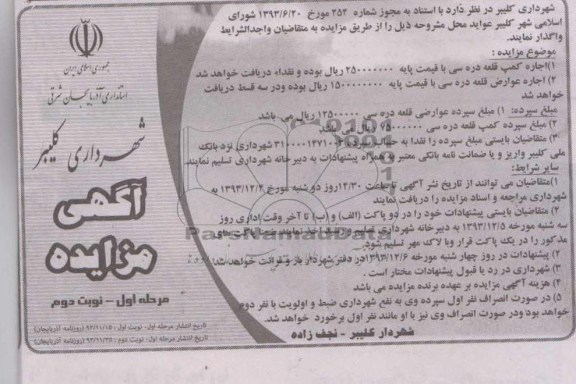 شهرداری کلیبر در نظر دارد با استناد به مجوز شماره ۲۵۲ مورخ ۱۳۹۳/۶/۲۰ شورای
اسلامی شهر کلیبر عواید محل مشروحه ذیل را از طریق مزایده به متقاضیان واجدالشرایط
واگذار نمایند.
موضوع مزایده :
۱)اجاره کمپ قلعه دره سی با قیمت پایه ۲۵۰۰۰۰۰۰۰ ریال بوده و نقداء دریافت خواهد شد
۲) اجاره عوارض قلعه دره سی با قیمت پایه ۱۵۰۰۰۰۰۰۰ ریال بوده ودر سه قسط دریافت
خواهد شد
مبلغ سپرده: ۱) مبلغ سپرده عوارضی قلعه دره سی ۱۲۵۰۰۰۰۰ ریال می باشد
۲) مبلغ سپرده کمپ قلعه دره سی
۳) متقاضیان بایستی مبلغ سپرده را نقدا به حساب سپرده شهرداری نزد بانک
ملی کلیبر واریز و یا ضمانت نامه بانکی معتبر به همراه پیشنهادات به دبیرخانه شهرداری تسلیم نمایند.
سایر شرایط:
۱)متقاضیان می توانند از تاریخ نشر آگهی تا ساعت ۱۲/۳۰ روز دوشنبه مورخ ۱۳۹۳/۱۲/۴ به
شهرداری مراجعه و اسناد مزایده را دریافت نمایند
۲) متقاضیان بایستی پیشنهادات خود را در دو پاکت (الف) و (ب) تا آخر وقت اداری روز
سه شنبه مورخه ۱۳۹۳/۱۲/۵ به دبیرخانه شهرداری
مذکور را در یک پاکت قرار وبا لاک مهر تسلیم شود.
۲) پیشنهادات در روز چهار شنبه مورخه ۱۳۹۳/۱۲/۶ در دفتر شهردار باز و قرائت خواهد شد
۳) شهرداری در رد یا قبول پیشنهادات مختار است .
۴) هزینه آگهی مزایده بر عهده برنده مزایده می باشد
۵) در صورت انصراف نفر اول سپرده وی به نفع شهرداری ضبط و اولویت با نفر دوم
خواهد بود ودر صورت انصراف وی نیز با او مانند نفر اول برخورد خواهد شد.
شهردار کلیبر - نجف زاده
جمهوری اسلامی ایران
استانداری آذربایجان شرقی
شهرداری کلیبر
آگهی
مزایده
مرحله اول - نوبت دوم
تاریخ انتشار مرحله اول- نوبت اول : ۹۳/۱۱/۱۵ (روزنامه آذربایجان)
تاریخ انتشار مرحله اول- نوبت دوم : ۹۳/۱۱/۲۵ (روزنامه آذربایجان)
ParsNamadData